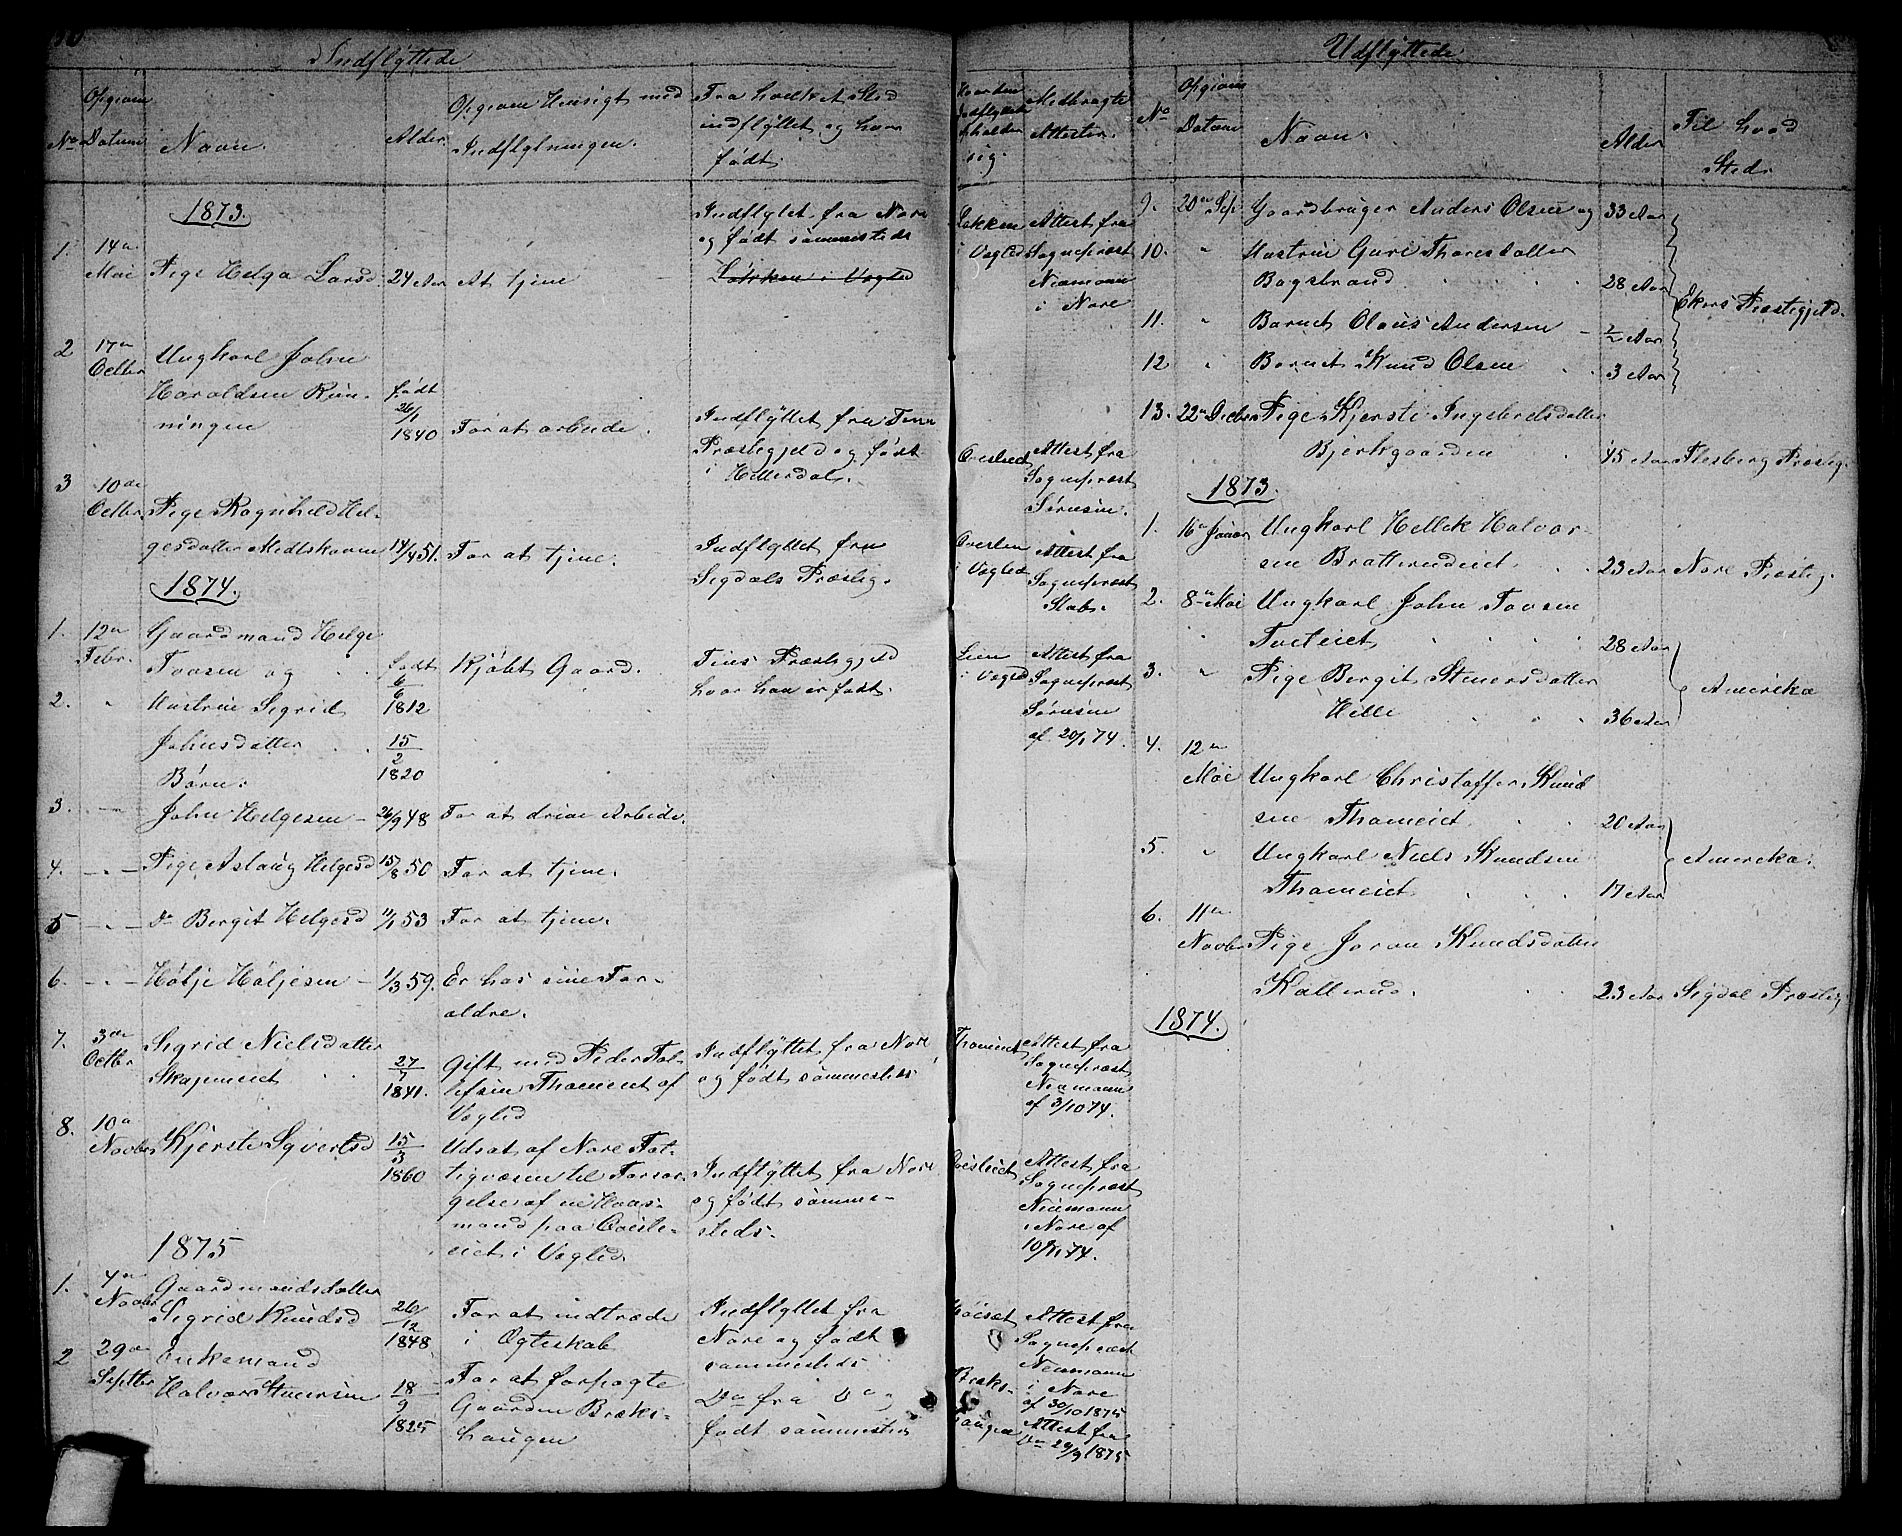 Indflyttede
No
Opgiven Datum
Navn.
Alder
Opgiven Hensigt med Indflytningen.
Fra hvilket Sted indflyttet og hvor født.
Medbragte Attester.
1873.
1. 14de Mai Pige Helga Larsd. 24 Aar At tjene
Indflyttet fra Nore og født sammesteds
Løkken i Vegled
Løkken i Vegled
Attest fra Sognepræst Neumann i Nore
2 17de Octbr Ungkarl John Haroldsen Rønningen født 26/1 1840 For at arbeide.
Indflyttet fra Tins Præstegjeld og født i Hitterdal.
Attest fra Sognepræst Sørensen.
3 10de Octbr. Pige Ragnhild Helgesdatter Medtskoven 14/4 51. For at tjene.
Indflyttet fra Sigdals Præsteg.
i Vegled
Attest fra Sognepræst Stabs.
1874.
1. 12te Febr. Gaardmand Helge Tovsen og født 6/6 1812 Kjøbt Gaard.
Tins Præstegjeld hvor han er født.
Lien i Vegled
Attest fra Sognepræst Sørensen af 20/1 74.
2. " Hustrue Sigrid Johnsdatter 15/2 1820
Børn:
3. — John Helgesen 26/9 48 For at drive Arbeide.
4. — " — Pige Aslaug Helgesd 15/8 50 For at tjene.
5 — " — Do Bergit Helgesd 11/1 53 For at tjene.
6. — " — Høljе Høljesen 1/3 59. Er hos sine Forældre.
7. 3die Octbr Sigrid Nielsdatter Skapmeiet 27/7 1841. Gift med Peder Tollefsen Thomeiet af Vegled
Indflyttet fra Nore og født sammesteds
Thomeiet
Attest fra Sognepræst Neumann af 3/10 74.
8. 10de Novbr Kjersti Syvertsd 15/3 1860 Udsat af Nore Fattigvæsen til Forsørgelse af en Huusmand paa Overleiet i Vegled
Indflyttet fra Nore og født sammesteds.
Attest fra Sognepræst Neumann i Nore af 10/11 74.
1875
1. 4de Novbr Gaardmandsdatter Sigrid Knudsd 26/12 1848 For at indtræde i Ægteskab
Indflyttet fra Nore og født sammesteds
Attest fra Sognepræst Neumann i Nore af 30/10 1875
2 29de Septbr Enkemand Halvor Steensen 18/9 1825 For at forpagte Gaarden Brækshaugen
Do fra Do og født sammesteds
Brækshaugen
Attest fra Do 29/9 1875
Udflyttede
No
Opgiven Datum
Navn.
Alder
Til hvad Sted.
9. 20de Sep Gaardbruger Anders Olsen og 33 Aar
10. " Hustrue Guri Tharesdatter Bagstrand 28 Aar
11. " Barnet Olaus Andersen 1/2 Aar
12 " Barnet Knud Olsen 3 Aar
Ekers Præstegjeld.
13. 22de Decbr Pige Kjersti Ingebretsdatter Bjerkgaarden 45 Aar Flesberg Præsteg.
1873.
1. 16de Januar Ungkarl Hellek Halvorsen Bratterudeiet 23 Aar Nore Præsteg.
2. 8de Mai Ungkarl John Tovsen Tveteiet 28 Aar
3. " Pige Bergit Steensdatter Helle 36 Aar
Amerika
4. 12te Mai Ungkarl Christoffer Knudsen Thomeiet 20 Aar
5. " Ungkarl Niels Knudsen Thomeiet 17 Aar
Amerika.
6. 11te Novbr Pige Joran Knudsdatter Kallerud. 23 Aar Sigdal Præsteg
1874.